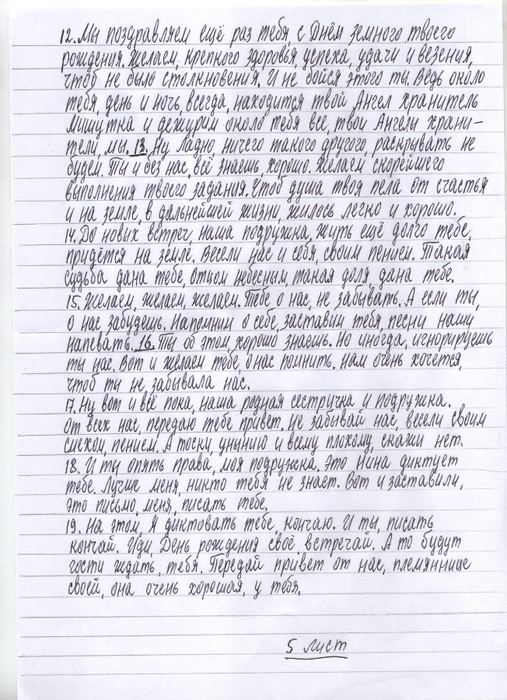 12. Мы поздравляем ещё раз тебя, с Днём земного твоего
рождения. Желаем, крепкого здоровья, успеха, удачи и везения,
чтоб не было столкновения. И не бойся этого ты. Ведь около
тебя, день и ночь, всегда, находится твой Ангел хранитель
Мишутка и дежурим около тебя все, твои Ангелы храни-
тели, мы. 13. Ну ладно, ничего такого другого, раскрывать не
будем. Ты и без нас, всё знаешь, хорошо. Желаем скорейшего
выполнения твоего задания. Чтоб душа твоя пела от счастья
и на земле, в дальнейшей жизни, жилось легко и хорошо.
14. До новых встреч, наша подружка, жить ещё долго тебе,
придётся на земле. Весели нас и себя, своим пением. Такая
судьба дана тебе, Отцом небесным, такая доля, дана тебе.
15. Желаем, желаем, желаем. Тебе о нас, не забывать. А если ты,
о нас забудешь. Напомним о себе, заставим тебя, песни нашу
напевать. 16. Ты об этом, хорошо знаешь. Но иногда, игнорируешь
ты нас. Вот и желаем тебе, о нас помнить. Нам очень хочется,
чтоб ты не забывала нас.
17. Ну вот и всё пока, наша родная сестричка и подружка.
От всех нас, передаю тебе привет, не забывай нас, весели своим
смехом, пением. А тоски, унынию и всему плохому, скажи нет.
18. И ты опять права, моя подружка. Это Нина диктует
тебе. Лучше меня, никто тебя не знает. Вот и заставили,
это письмо, меня, писать тебе.
19. На этом, я диктовать тебе, кончаю. И ты, писать
кончай. Иди, День рождения своё, встречай. А то будут
гости ждать, тебя. Передай привет от нас, племяннице
своей, она очень хорошая, у тебя.
5 лист